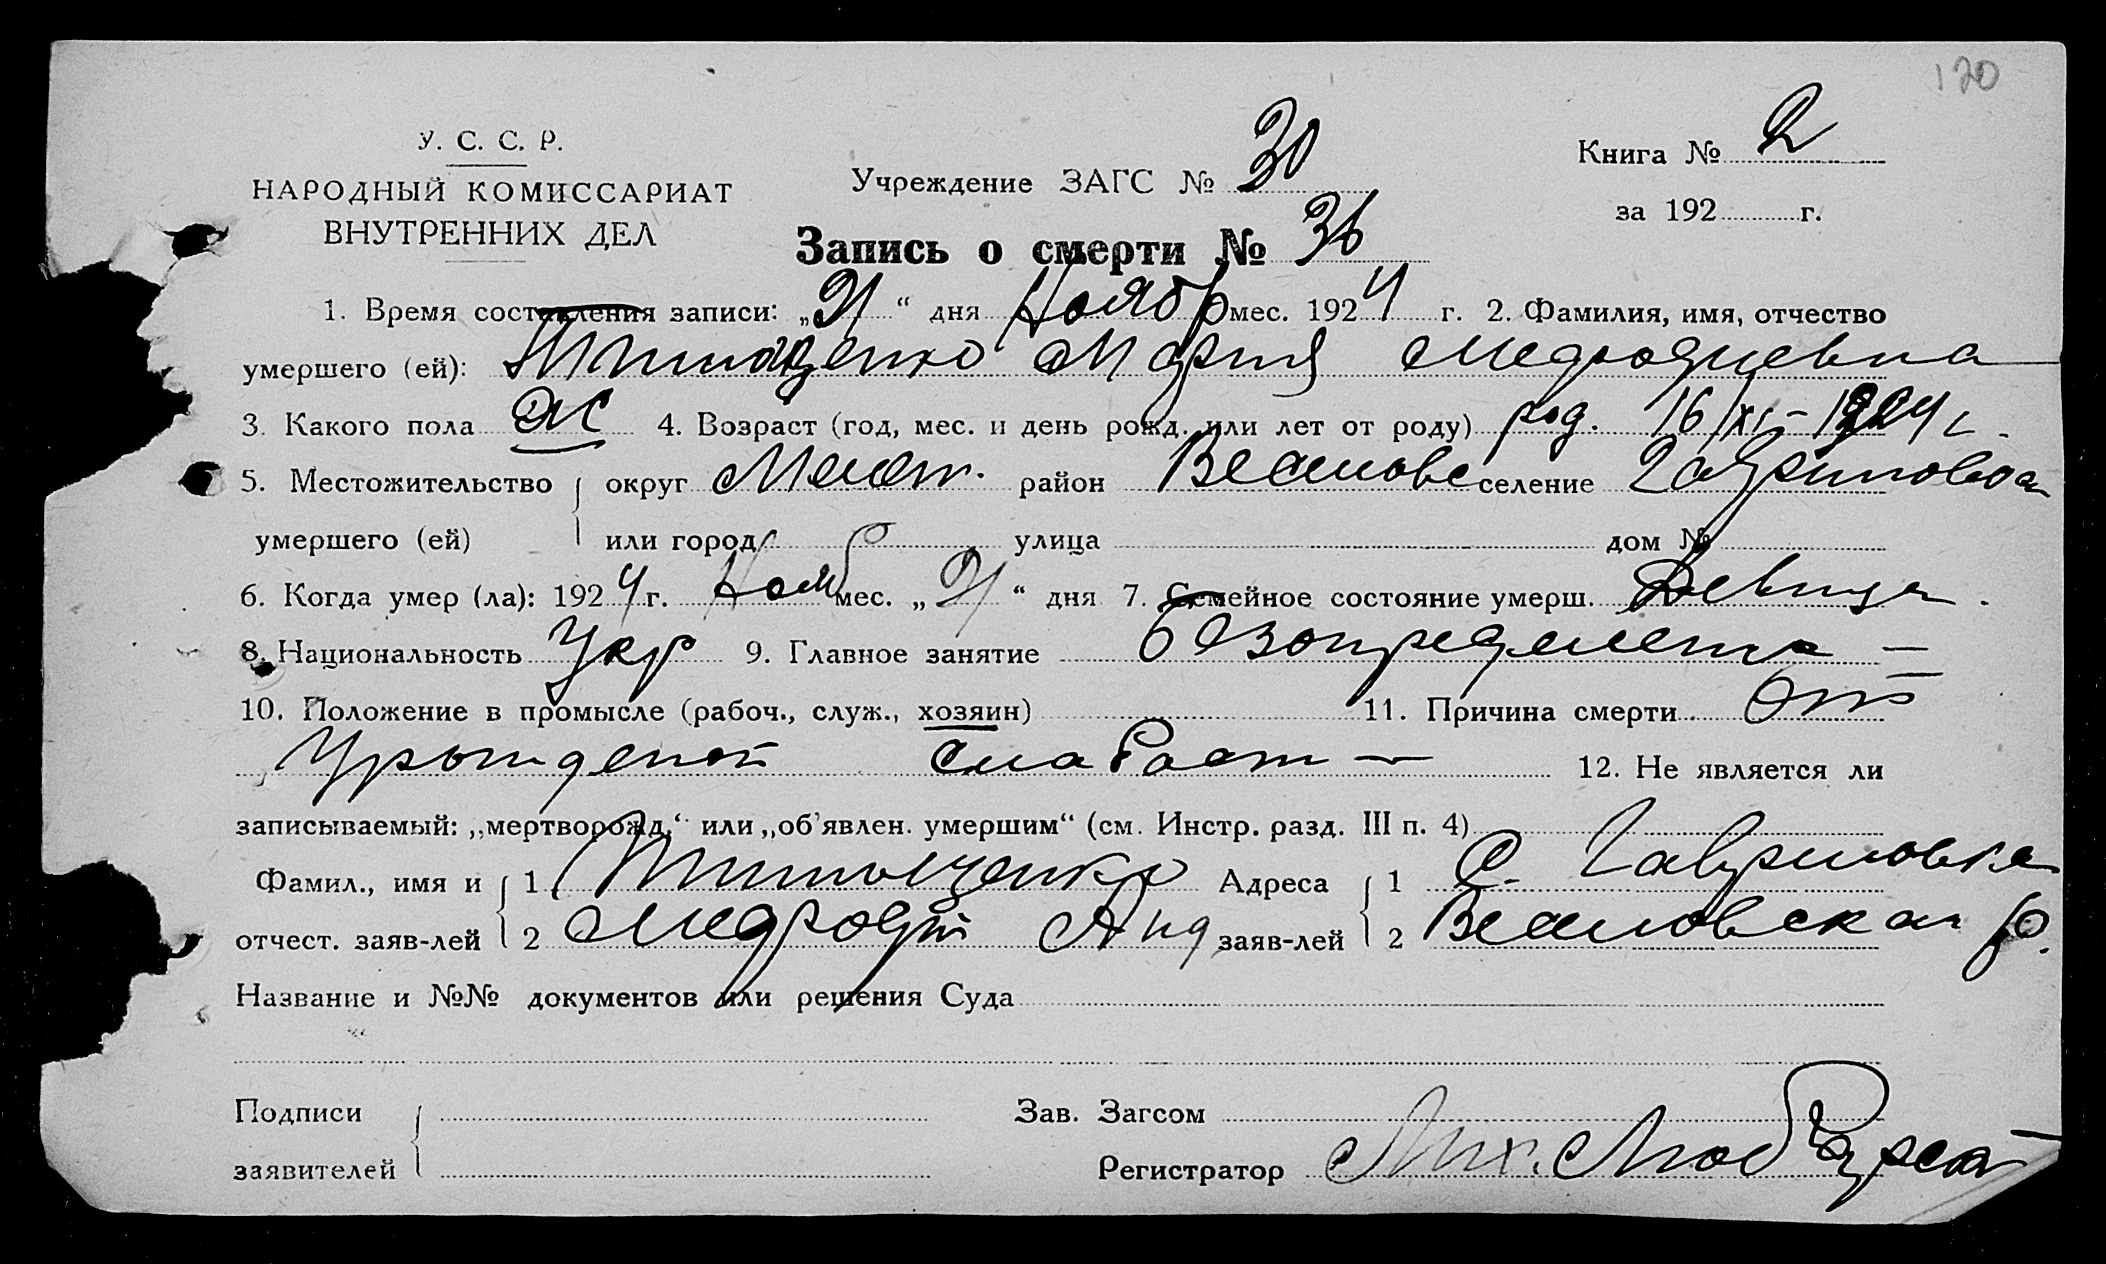 120
У. С. С. Р.
НАРОДНЫЙ КОМИССАРИАТ
ВНУТРЕННИХ ДЕЛ
Учреждение ЗАГС № 30
Книга № 2
за 192 г.
Запись о смерти № 36
1. Время составления записи: „21“ дня Ноябр мес. 1924 г. 2. Фамилия, имя, отчество
умершего (ей): Тимощенко Мария Мефодиевна
3. Какого пола Ж 4. Возраст (год, мес. и день рожд. или лет от роду) род. 16/XI-1924 г.
5. Местожительство округ Мелит. район Веселовс селение Гавриловка
умершего (ей) или город улица дом №
6. Когда умер (ла): 1924 г. Нояб мес. „21“ дня 7. Семейное состояние умерш. Девица.
8. Национальность Укр 9. Главное занятие
10. Положение в промысле (рабоч., служ., хозяин) 11. Причина смерти От
слабост — 12. Не является ли
записываемый: „мертворожд.“ или „об'явлен. умершим“ (см. Инстр. разд. III п. 4)
Фамил., имя и 1 Тимощенко Адреса 1 С. Гавриловка
отчест. заяв-лей 2 Мефодий Анд заяв-лей 2 Веселовская р.
Название и №№ документов или решения Суда
Подписи Зав. Загсом
заявителей Регистратор